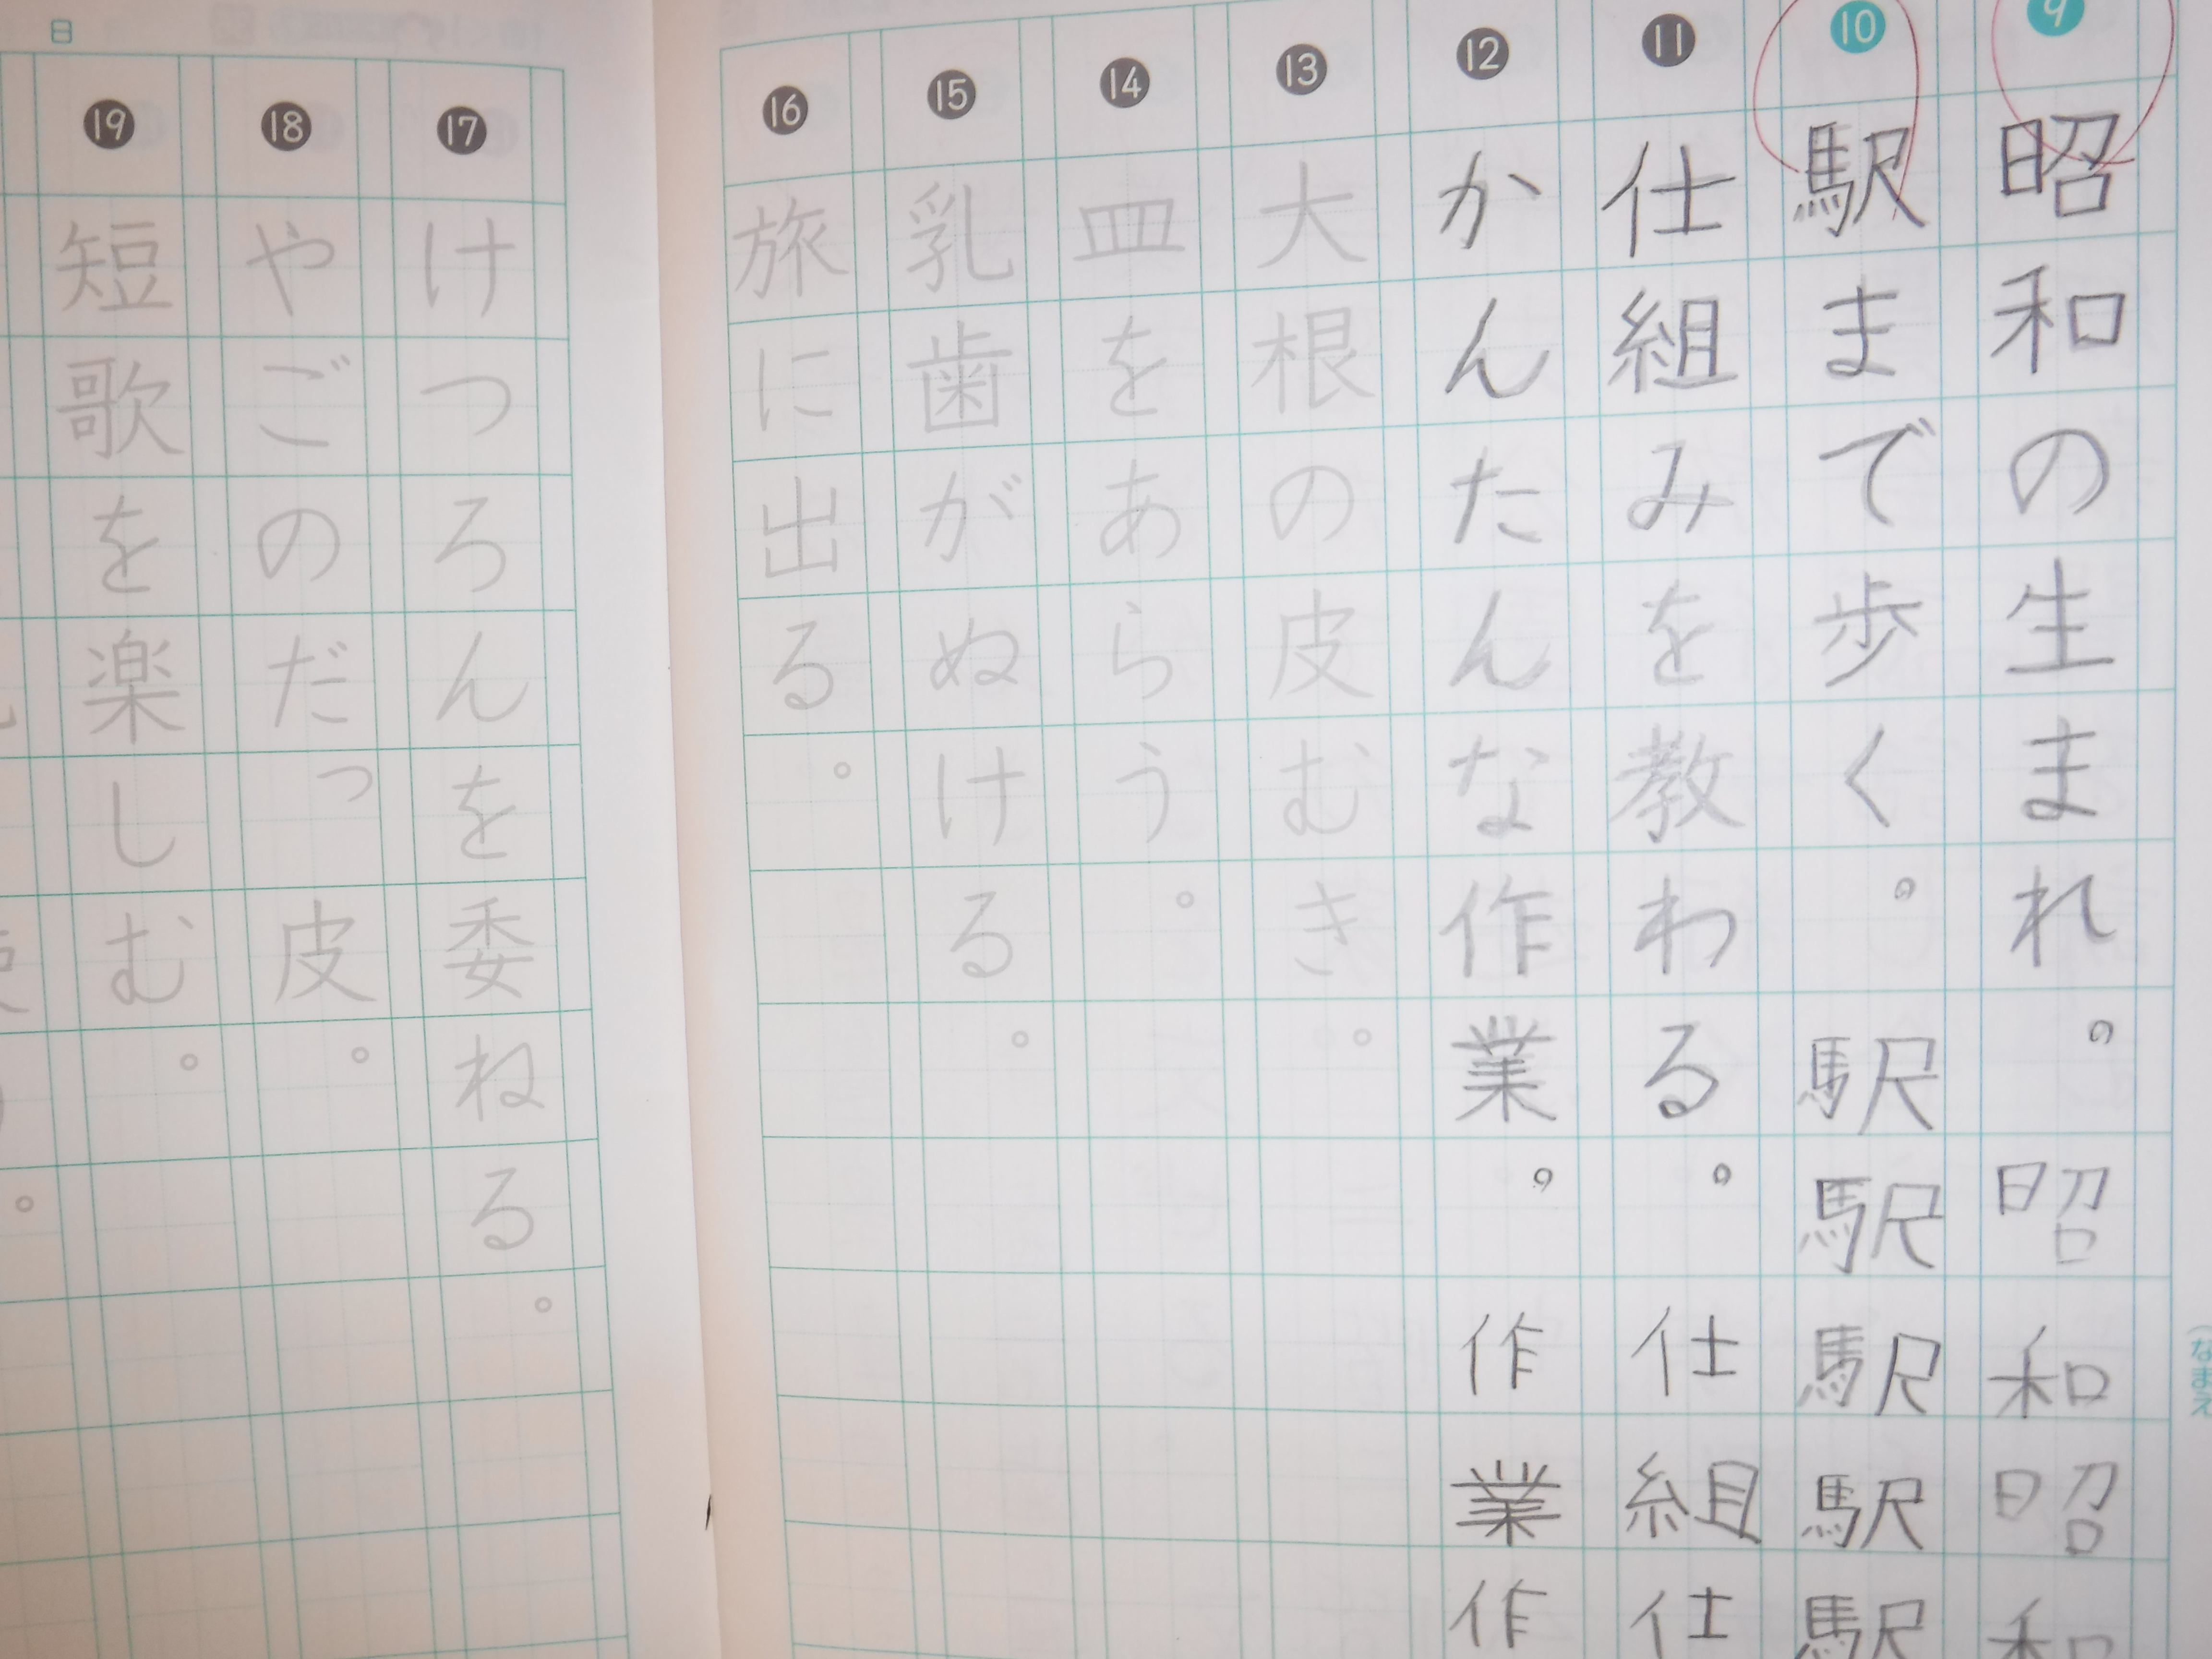 9 昭和の生まれ。昭和昭和
10 駅まで歩く。駅駅駅駅駅
11 仕組みを教わる。仕組仕
12 かんたんな作業。作業作
13 大根の皮むき。
14 皿をあらう。
15 乳歯がぬける。
16 旅に出る。
17 けつろんを委ねる。
18 やごのだっ皮。
19 短歌を楽しむ。
日
(なまえ